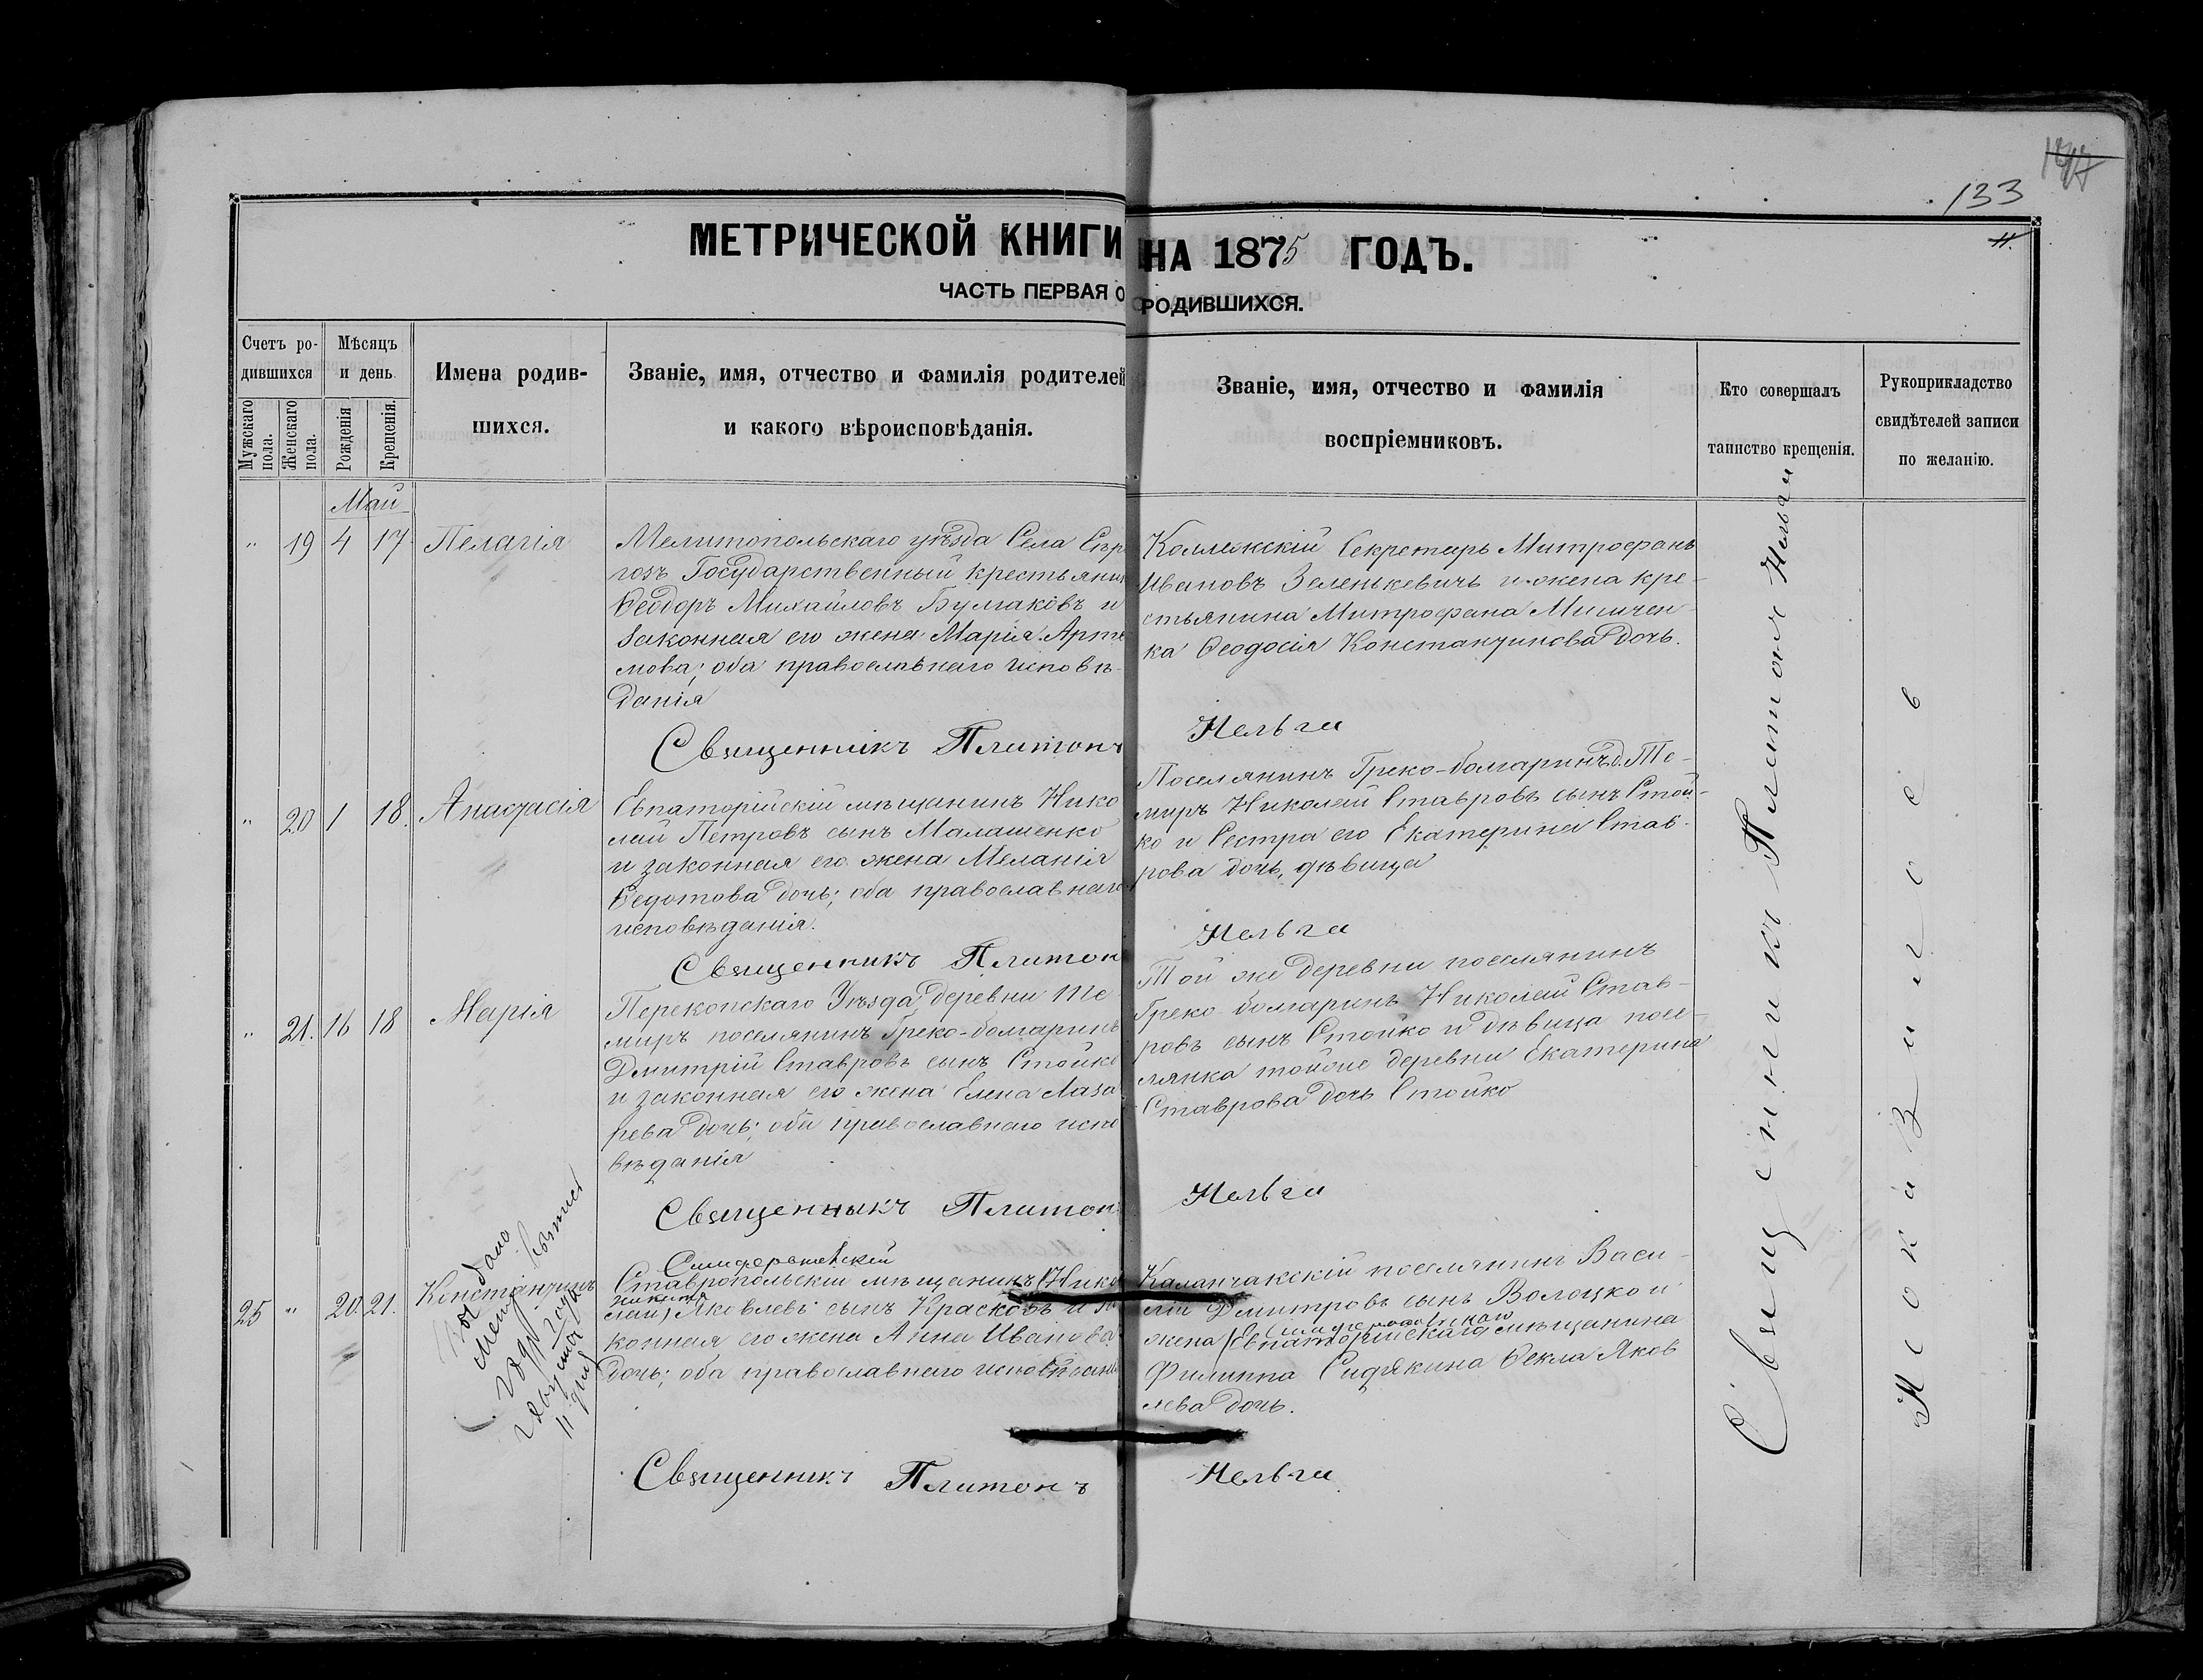 133
МЕТРИЧЕСКОЙ КНИГИ НА 1875 ГОДЪ.
ЧАСТЬ ПЕРВАЯ О РОДИВШИХСЯ.
Счетъ ро-
дившихся
Мужскаго пола.
Женскаго пола.
Мѣсяцъ
и день
Рожденія
Крещенія.
Имена родив-
шихся.
Званіе, имя, отчество и фамилія родителей
и какого вѣроисповѣданія.
Званіе, имя, отчество и фамилія
воспріемниковъ.
Кто совершалъ
таинство крещенія.
Рукоприкладство
свидѣтелей записи
по желанію.
Май
" 19 4 17 Пелагія
Мелитопольскаго уѣзда Села Сѣро
гозъ Государственный крестьянин
Ѳеодоръ Михайловъ Булгаковъ и
законная его жена Марія Арте
мова; оба православнаго исповѣ-
данія
Коллежскій Секретарь Митрофанъ
Ивановъ Зеленькевичь и жена кре-
стьянина Митрофана Мишчен-
ка Ѳеодосія Константинова дочь.
Священникъ Платонъ
" 20 1 18. Анастасія
Евпаторійскій мѣщанинъ Нико
лай Петровъ сынъ Малашенко
и законная его жена Меланія
Ѳедотова дочь; оба православнаго
исповѣданія.
Поселянинъ Греко-болгаринъ д. Те-
миръ Николай Ставровъ сынъ Стой-
ко и Сестра его Екатерина Став-
рова дочь, дѣвица
Священникъ Платон
" 21. 16 18 Марія
Перекопскаго Уѣзда деревни Те
миръ поселянинъ Греко-болгаринъ
Дмитрій Ставровъ сынъ Стойко
и законная его жена Елена Лаза
рева дочь; оба православнаго испо
вѣданія
Той же деревни поселянинъ
Греко-болгаринъ Николай Став-
ровъ сынъ Стойко и дѣвица посе-
лянка тойже деревни Екатерина
Ставрова дочь Стойко
Священникъ Платон
25 " 20. 21. Константинъ
года
августа
11 дня
Симферопольскій
Ставропольскій мѣщанинъ (Нико
Никита
лай) Яковлевъ сынъ Красковъ и за
конная его жена Анна Иванова
дочь; оба православнаго исповѣдані
Каланчакскій поселянинъ Васи-
лій Дмитровъ сынъ Волоцкой
Симферопольскаго
жена (Евпаторійскаго мѣщанина
Филиппа Сидякина Ѳекла Яков
лева дочь.
Священникъ Платонъ
Священникъ Платонъ